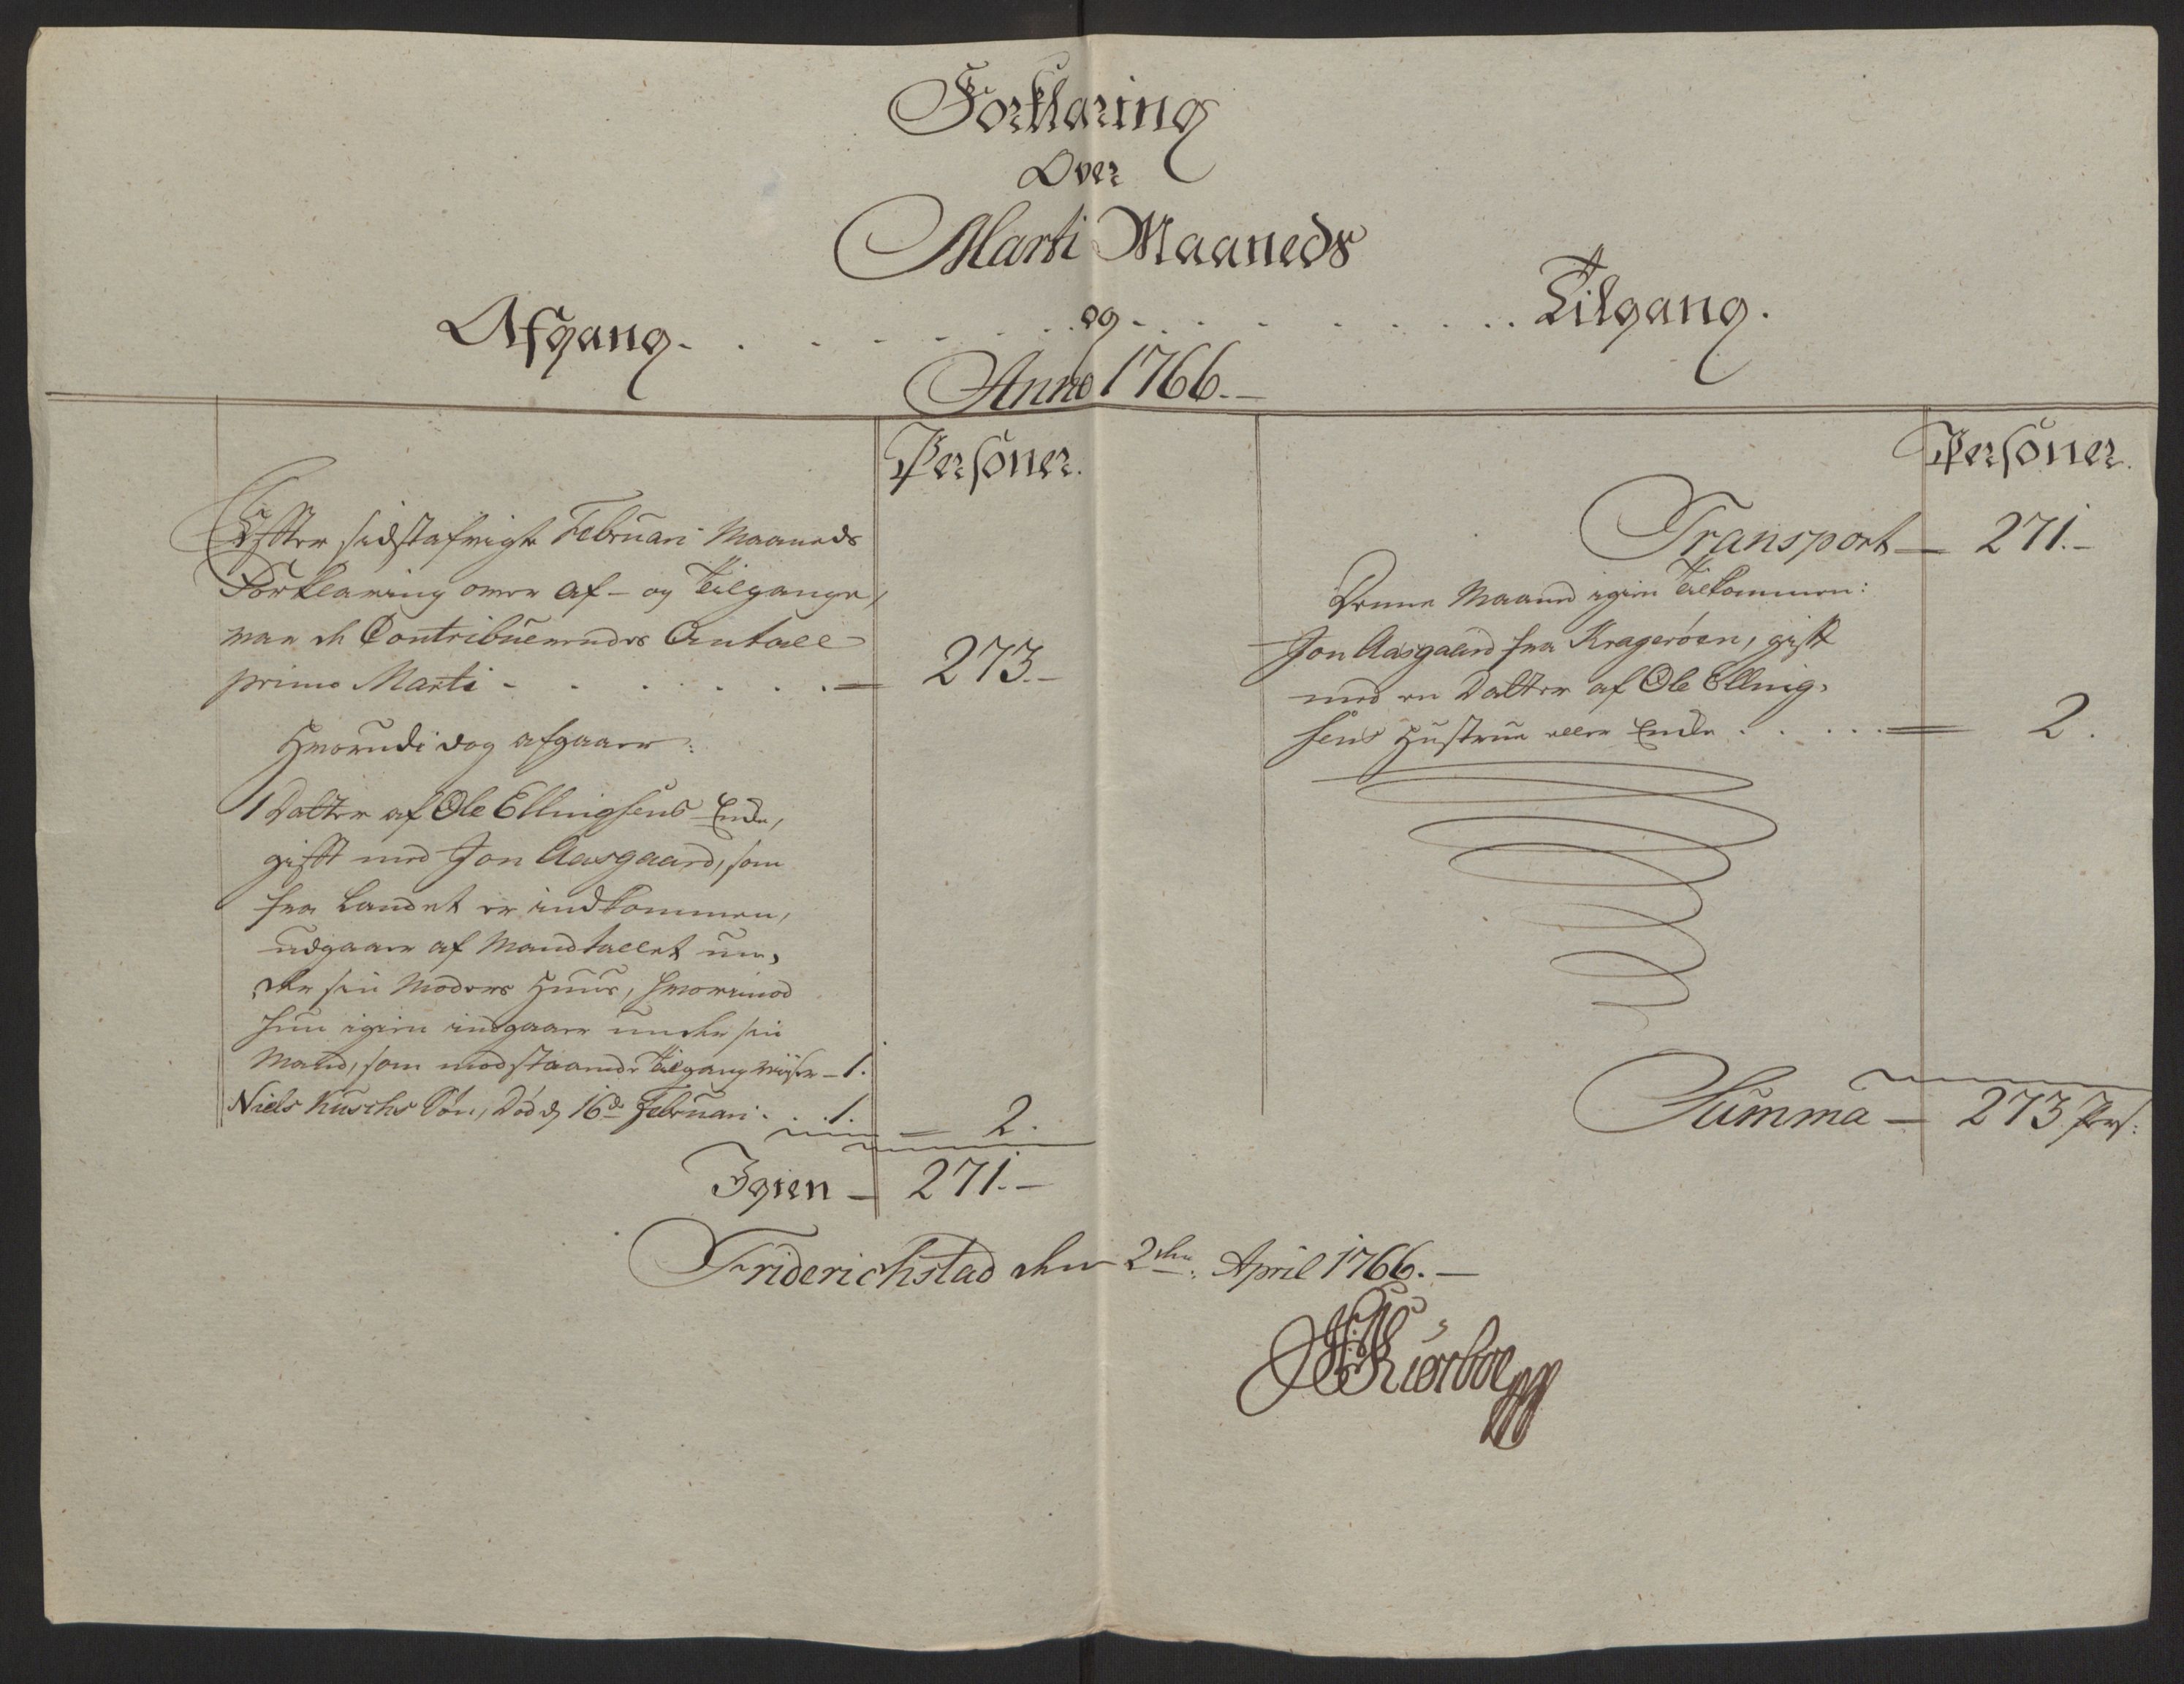 Forklaring
Over
Marti Maaneds
Afgang. . . . . . . og . . . . . . . Tilgang.
Anno 1766.
Personer.
Effter sidstafvigte Februari Maaneds
Forklaring over Af- og Tilgange,
var de Contribuerendes Antall
primo Marti - . . . . . . 273.
Hvorudi dog afgaaer:
1 Datter af Ole Ellingsens Enke,
gifft med Jon Aasgaard, som
fra Landet er indkommen,
udgaaer af Mandtallet un-
der sin Moders Huus, hvorimod
hun igien indgaaer under sin
Mand, som modstaaende Tilgang viiser - 1.
Niels Kuschs Søn, død d 16de Februari . . 1. 2.
Igien - 271.
Personer.
Transport - 271.
Denne Maaned igien tilkommen:
Jon Aasgaard fra Kragerøen, gift
med en Datter af Ole Elling-
sens Hustrue eller Enke . . . . . 2.
Summa - 273 Pers:
Friderichstad den 2den April 1766.
Kiørboe